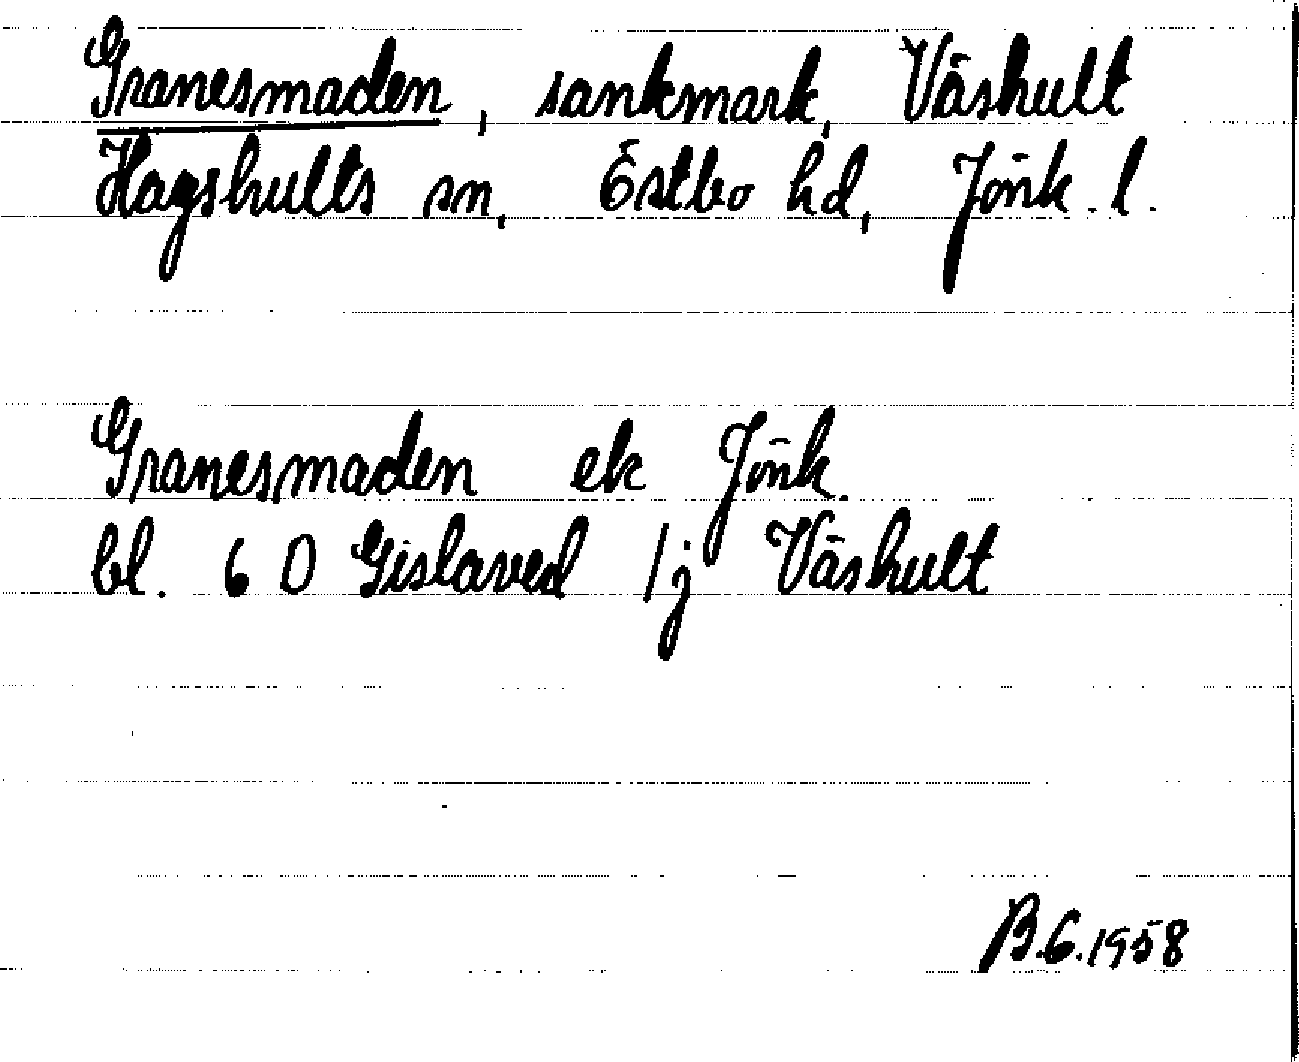 Granesmaden, sankmark, Våshult
Hagshults sn, Östbo hd, Jönk. l.
Granesmaden ek Jönk.
bl. 6 D Gislaved 1j Våshult
B.G.1958